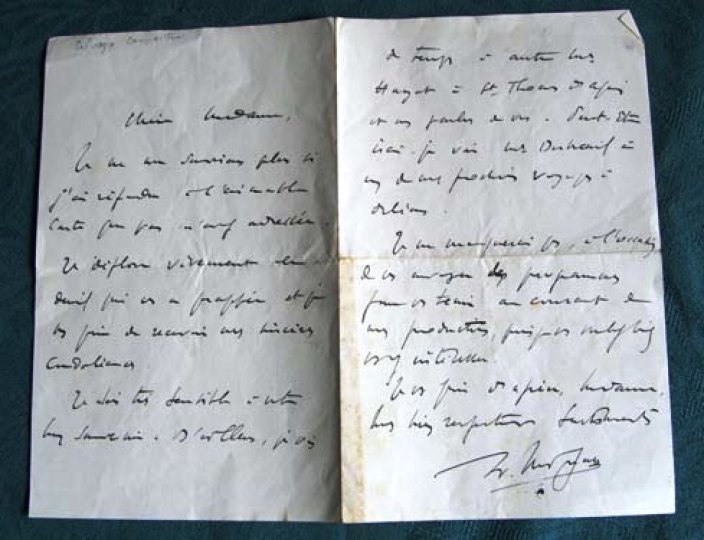 Chère Madame,
Je ne me souviens plus si
j'ai répondu à l'aimable
carte que vous m'avez adressée.
Je déplore vivement le
deuil qui vous a frappée et je
vous prie de recevoir mes sincères
condoléances
Je suis très sensible à votre
bon souvenir. D'ailleurs, je vois
de temps à autre
à St. Thomas d'Aquin
et nous parlons de vous. Peut-être
irai-je voir à
un de mes prochains voyages à
Orléans.
Je ne manquerai pas, à l'occasion,
de vous envoyer des programmes
pour vous tenir au courant de
mes productions, puisque
vous y intéresser.
Je vous prie d'agréer, Madame,
mes bien respectueux sentiments